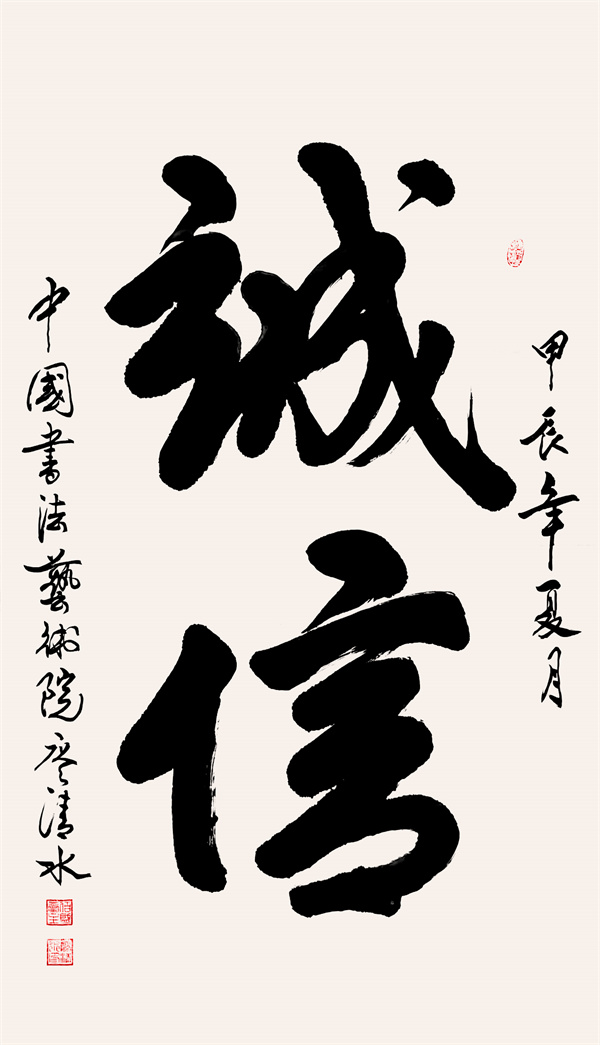 甲辰年夏月
誠信
中國書法藝術院廖清水